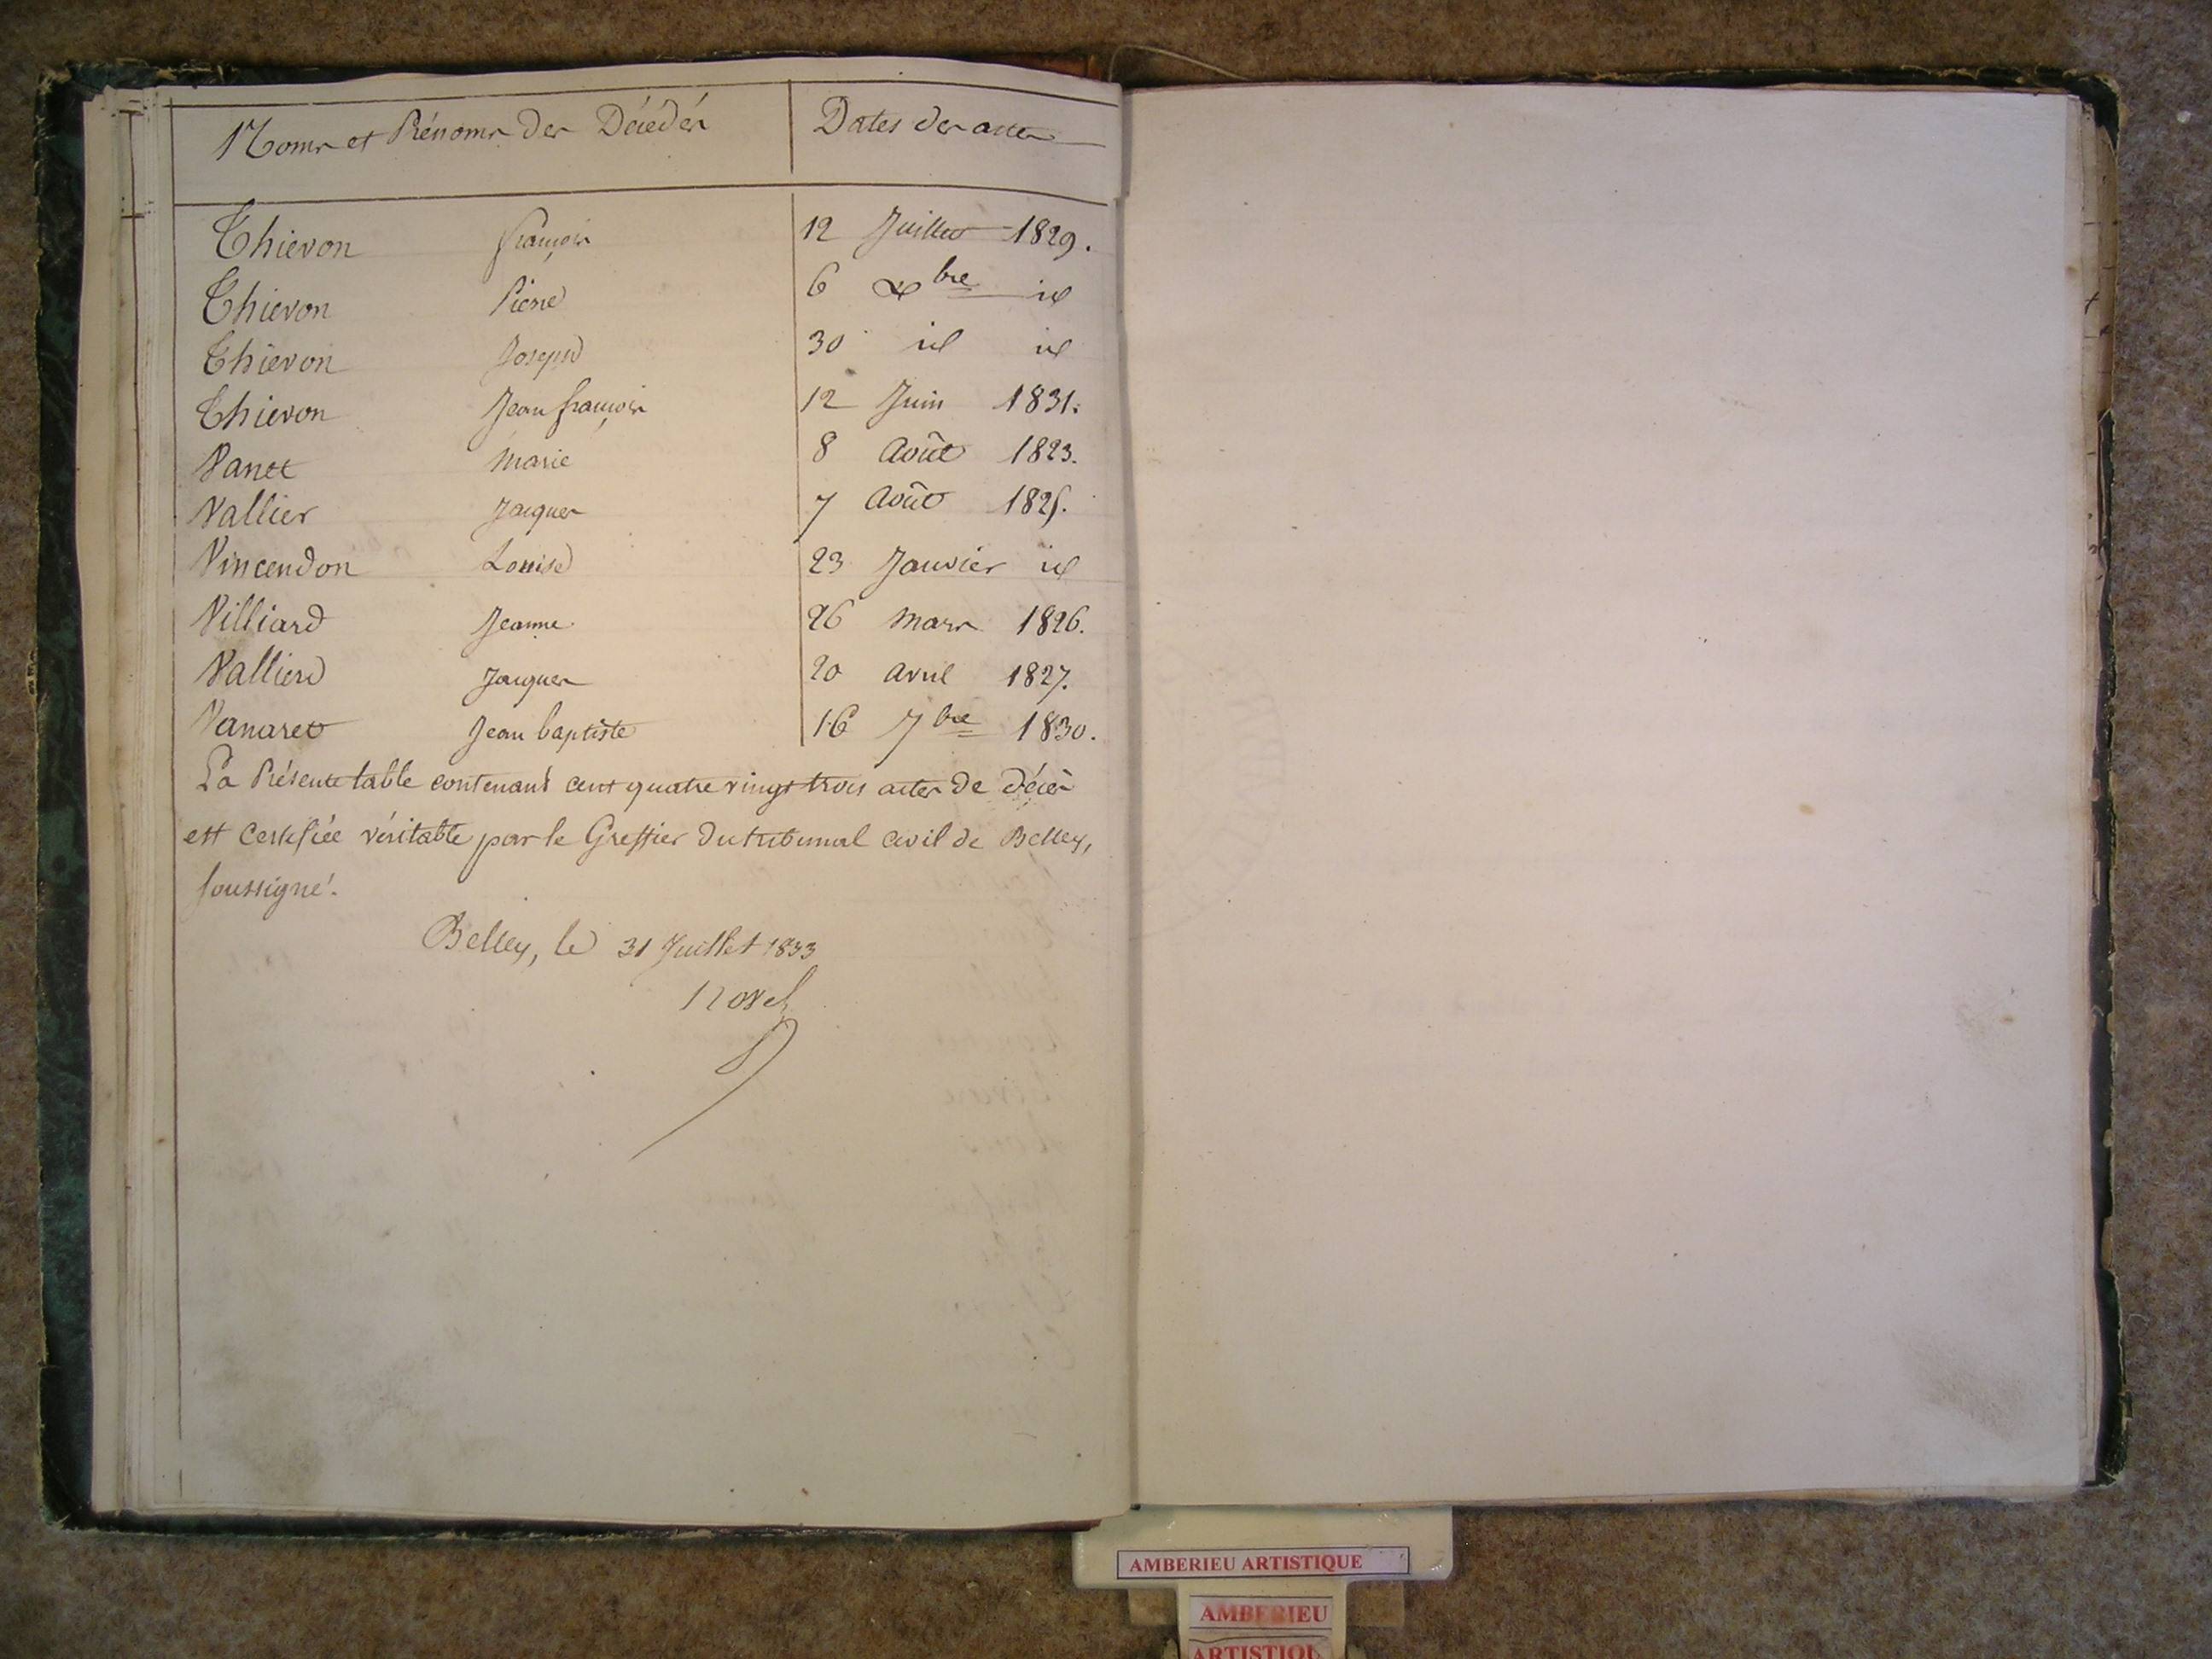 Noms et Prénoms des Décédés Dates des actes
Thievon françois 12 Juillet 1829.
Thievon Pierre 6 Xbre id
Thievon Joseph 30 id id
Thievon Jean françois 12 Juin 1831.
Vanet Marie 8 Août 1823.
Vallier Jacques 7 Août 1825.
Vincendon Louise 23 Janvier id
Villiard Jeanne 26 Mars 1826.
Vallier Jacques 20 Avril 1827.
Vanaret Jean baptiste 16 7bre 1830.
La Présente table contenant cent quatre vingt trois actes de décès
est certifiée véritable par le Greffier du tribunal civil de Belley,
soussigné.
Belley, le 31 Juillet 1833
AMBERIEU ARTISTIQUE
AMBERIEU